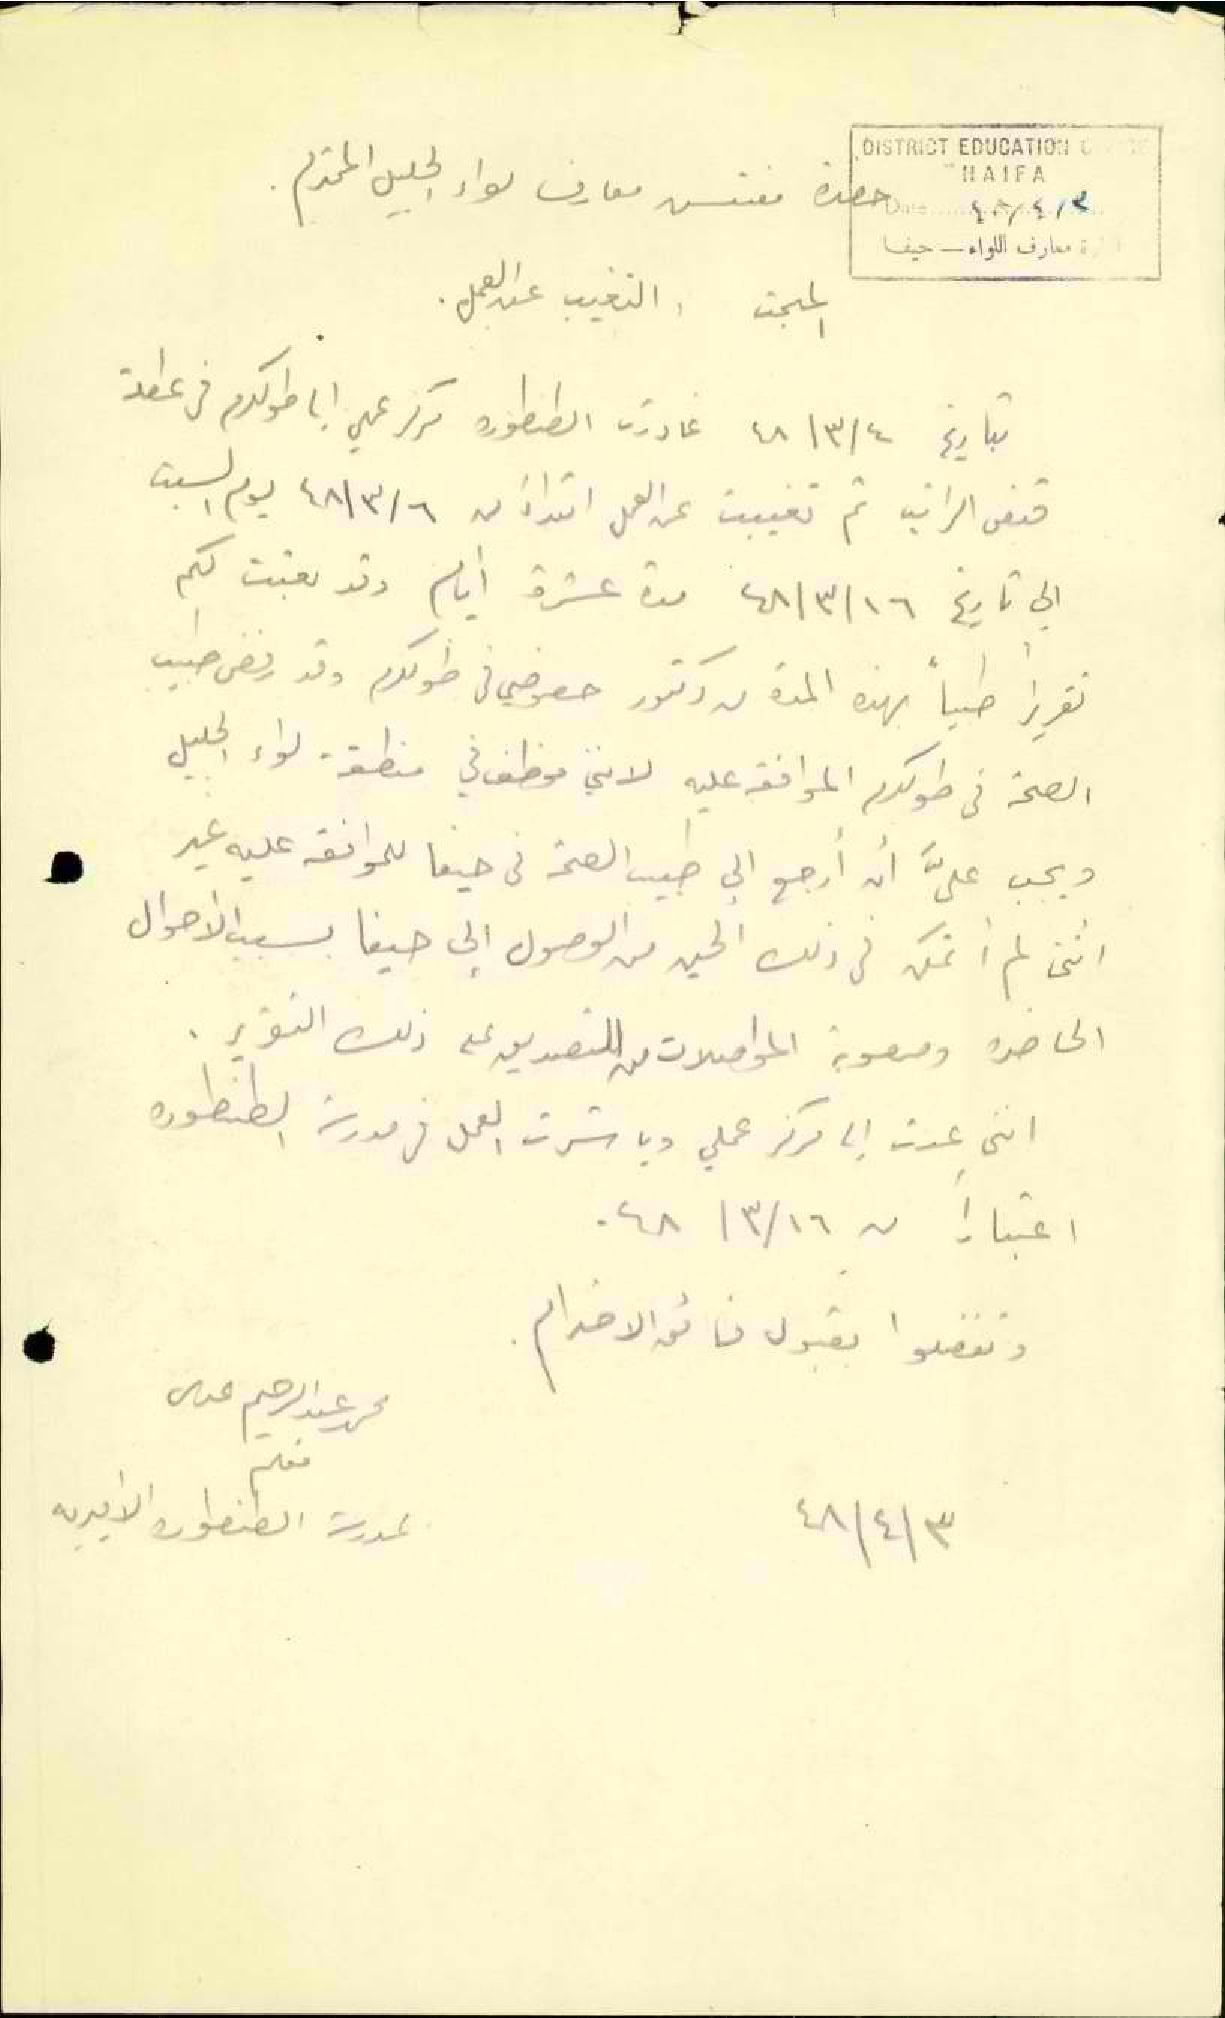 DISTRICT EDUCATION
HAIFA
Date ٤٨/٤/٣
معارف اللواء — حيفا
حضرة مفتش معارف لواء الجليل المحترم .
المبحث : التغيب عن العمل .
بتاريخ ٤٨/٣/٤ غادرت الطنطوره مركز عملي الى طولكرم في عطلة
قبض الراتب ثم تغيبت عن العمل ابتداءً من ٤٨/٣/٦ يوم السبت
الى تاريخ ٤٨/٣/١٦ مدة عشرة أيام وقد بعثت لكم
تقريراً طبياً بهذه المدة من دكتور في طولكرم وقد رفض طبيب
الصحة في طولكرم الموافقة عليه لانني موظف في منطقة لواء الجليل
ويجب عليَّ أن أرجع إلى طبيب الصحة في حيفا للموافقة عليه غير
انني لم أتمكن في ذلك الحين من الوصول إلى حيفا بسبب الاحوال
الحاضره وصعوبة المواصلات من للتصديق على ذلك التقرير .
انني عدت الى مركز عملي وباشرت العمل في مدرسة الطنطوره
اعتباراً من ٤٨/٣/١٦ .
وتفضلوا بقبول فائق الاحترام .
محمد عبد الرحيم
معلم
مدرسة الطنطوره الاميريه
٤٨/٤/٣